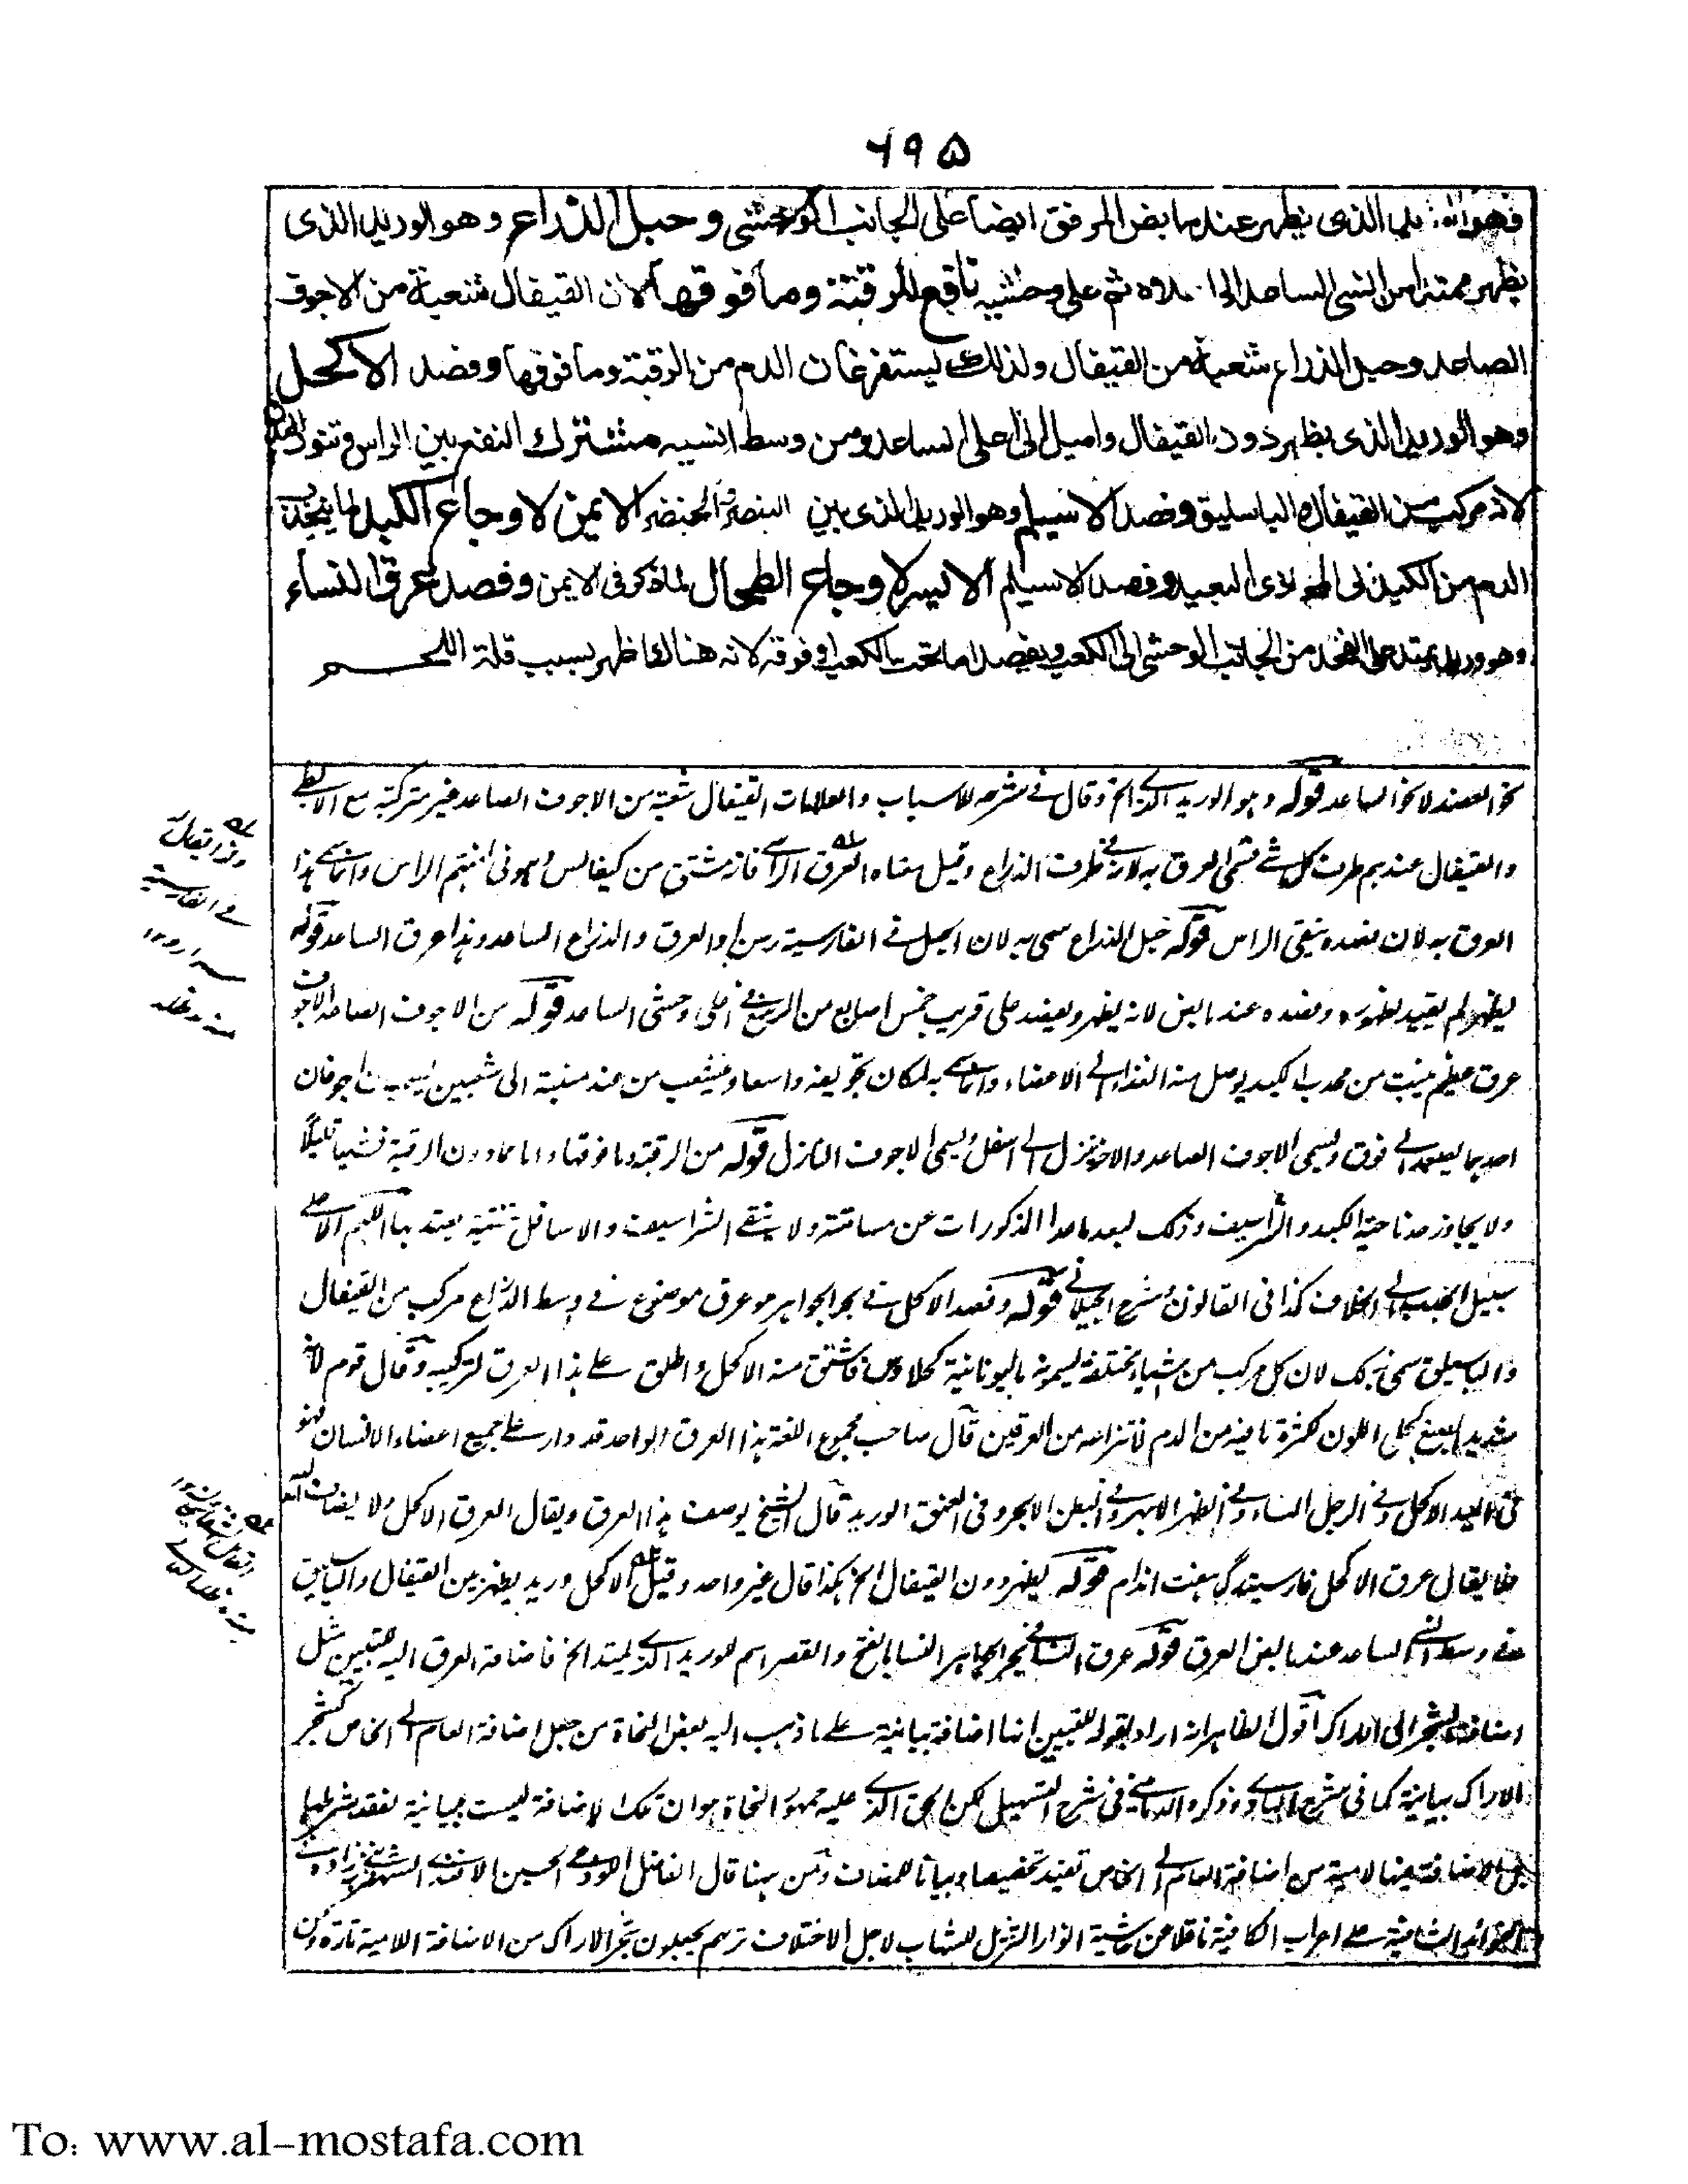 ۶۹۵
الذى يظهر عند مابض المرفق ايضا على الجانب الوحشى وحبل الذراع وهو الوريد الذى
يظهر ممتدا من انسى الساعد الى اعلاه ثم على وحشيه نافع للرقبة وما فوقها لان القيفال شعبة من الاجوف
الصاعد وحبل الذراع شعبة من القيفال ولذلك يستفرغان الدم من الرقبة وما فوقها وفصد الاكحل
وهو الوريد الذى يظهر دون القيفال واميل الى اعلى الساعد ومن وسط انسيه مشترك النفع بين الراس وتنور
لانه مركب من القيفال والباسليق وفصد الاسيلم وهو الوريد الذى بين البنصر والخنصر الايمن لاوجاع الكبد لما ينجذب
الدم من الكبد الى البعيد وفصد الاسيلم الايسر لاوجاع الطحال لما ذكر فى الايمن وفصد عرق النساء
وهو وريد يمتد على الفخذ من الجانب الوحشى الى الكعب ويفصد اما تحت الكعب او فوقه لانه هنالك اظهر بسبب قلة اللحم
نحو العضد لا نحو الساعد قوله وهو الوريد الذى الخ وقال فى شرحه للاسباب والعلامات القيفال شعبة من الاجوف الصاعد غير مركبة مع الابطى
والقيفال عندهم طرف كل شئ فسمى العرق به لانه فى طرف الذراع وقيل معناه العرق الراسى فانه مشتق من كيفالس وهو فى لغتهم الراس وانما سمى هذا
العرق به لان فصده ينقى الراس قوله حبل الذراع سمى به لان الحبل فى الفارسية رسن والعرق والذراع الساعد وهذا عرق الساعد قوله
يظهر لم يقيد بظهوره وفصده عند مابض لانه يظهر ويفصد على قريب خمس اصابع من الرسغ فى اعلى وحشى الساعد قوله من الاجوف الصاعد الاجوف
عرق عظيم ينبت من محدب الكبد يوصل منه الغذاء الى الاعضاء وانما سمى به لمكان تجويفه واسعا وينشعب من عند منبته الى شعبين يسميان اجوفان
احدهما يصعد الى فوق ويسمى الاجوف الصاعد والاخر ينزل الى اسفل ويسمى الاجوف النازل قوله من الرقبة وما فوقها واما مادون الرقبة فشيا قليلا
ولا يجاوز حد ناحية الكبد والشراسيف وذلك لبعد ماعدا المذكورات عن مسامتته ولا ينقى الشراسيف والاسافل تنقية يعتد بها اللهم الا على
سبيل الجذب الى الخلاف كذا فى القانون وشرح الجيلانى قوله وفصد الاكحل فى بحر الجواهر هو عرق موضوع فى وسط الذراع مركب من القيفال
والباسليق سمى بذلك لان كل مركب من اشياء مختلفة يسمونه باليونانية كحلاوس فاشتق منه الاكحل واطلق على هذا العرق لتركيبه وقال قوم لانه
شديد الصبغ كحلى اللون لكثرة ما فيه من الدم لانتزاعه من العرقين قال صاحب مجموع اللغة هذا العرق الواحد قد دار على جميع اعضاء الانسان فهو
فى اليد الاكحل وفى الرجل النساء وفى الظهر الابهر وفى البطن الابجر وفى العنق الوريد قال الشيخ يوصف هذا العرق ويقال العرق الاكحل ولا يضاف اليه
فلا يقال عرق الاكحل فارسيته رگ هفت اندام قوله يظهر دون القيفال الخ هكذا قال غير واحد وقيل الاكحل وريد يظهر بين القيفال والباسليق
فى وسط انسى الساعد عند مابض العرق قوله عرق النسا فى بحر الجواهر النسا بالفتح والقصر اسم للوريد الذى يمتد الخ فاضافة العرق اليه للتبيين مثل
اضافة الشجر الى الاراك اقول الظاهر انه اراد بقوله للتبيين انها اضافة بيانية على ما ذهب اليه بعض النحاة من جعل اضافة العام الى الخاص كشجر
الاراك بيانية كما فى شرح اللباب وذكره الدمامينى فى شرح التسهيل لكن الحق الذى عليه جمهور النحاة هو ان تلك الاضافة ليست ببيانية لفقد شرطها
بل الاضافة فيها لامية من اضافة العام الى الخاص تفيد تخصيصا وبيانا للمضاف ومن ههنا قال الفاضل
الفوائد الشافية على اعراب الكافية ناقلا عن حاشية انوار التنزيل للشهاب لاجل الاختلاف تريهم يجعلون شجر الاراك من الاضافة اللامية تارة ومن
To: www.al-mostafa.com